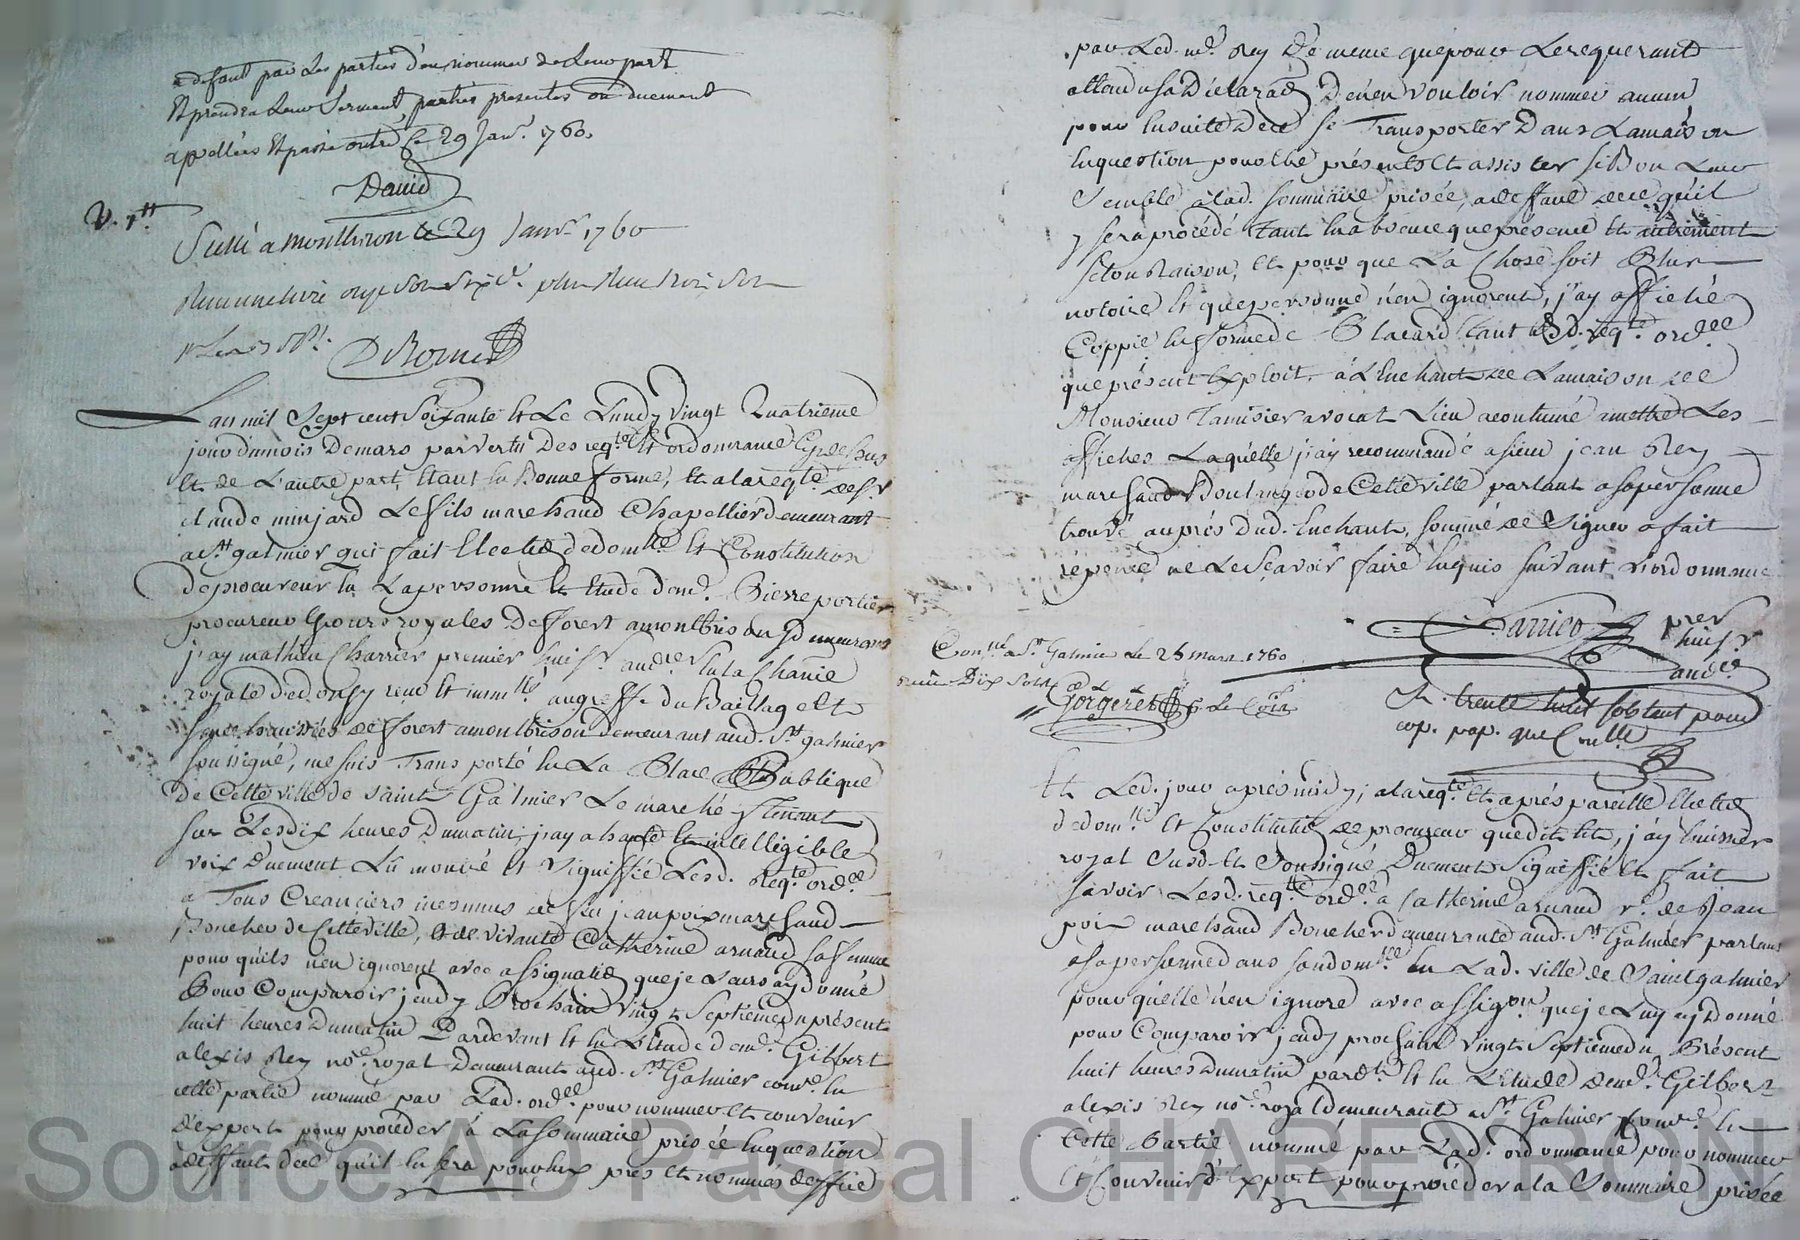 a defaut par les parties d'en nommer de leur part
et prendra leur serment, parties presentes ou duement
appellées et passé outre, ce 29 Janr. 1760.
David
V. 7tt
Sellé a montbrison le 29 Janr. 1760
L'an mil sept cent soixante et le lundy vingt quatrieme
jour du mois de mars par vertu des reqte. et ordonnance cy dessus
et de l'autre part, etant en bonne forme, et a la reqte. de sr
claude minjard le fils marchand chapellier demeurant
a st galmier qui fait election de domlle. et constitution
de procureur en la personne et etude de me. Pierre portier
procureur ez cours royales de fforest a montbrison y demeurant
j'ay mathieu Charrier premier huissr. audcier en la chanie
royale d'edonzy receu et immlé. au greffe du Bailliage et
senechaussées de forest a montbrison demeurant aud. st galmier
soussigné, me suis transporté en la Place Publique
de cette ville de saint Galmier le marché y tenant
sur les dix heures du matin, j'ay a haute et intelligible
voix duement lu montré et signiffié lesd. reqte. ordce.
a tous creanciers inconnus de feu jean poix marchand
Boucher de cette ville, et de vivante Catherine arnaud sa femme
pour qu'ils n'en ignorent avec assignation que je leurs ay donné
Pour comparoir jeudy Prochain vingt septieme du présent
huit heures du matin Pardevant et en l'etude de me. Gilbert
alexis Rey nore. royal demeurant aud. st Galmier comre. en
cette partie nommé par lad. ordce. pour nommer et convenir
d'expert pour proceder à la sommaire prisée en question
a deffaut de ce qu'il en sera pour eux pris et nommés d'office
par led. me. Rey de meme que pour le requerant
attendu sa déclaraon de n'en vouloir nommer aucun
pour ensuite de ce se transporter dans la maison
en question pour etre présents et assister si Bon leur
semble à lad. sommaire prisée, a deffaut de ce qu'il
y sera procédé tant en absence que présence et autrement
selon Raison, et pour que la Chose soit Plus
notoire et que personne n'en ignorent, j'ay affiché
Coppie en forme de Placard tant desd. reqte. ordce.
que présent Exploit, à l'Enchant de la maison de
Monsieur Tamisier avocat lieu acoutumé a mettre les
affiches laquelle j'ay recommandé a sieur jean Rey
marchand Boulanger de Cette ville parlant a sa personne
trouvé auprés dud. Enchant, sommé de signer a fait
réponce ne le sçavoir faire enquis suivant l'ordonnance
Charrier pier
huissr
audcr
Conlle a st. Galmier le 25 mars 1760
reçu Dix sols
Gorgeret
et trente huit sols tant pour
cop. pap. que Conlle
Et led. jour aprés midy, a la reqte. et aprés pareille Election
de domlle. et Constitution de procureur que dit est, j'ay huissier
royal susd. et soussigné duement signiffié et fait
savoir lesd. reqte. ordce. a catherine arnaud ve. de Jean
poix marchand Boucher demeurante aud. st Galmier parlant
a sa personne dans son domlle en lad. ville de saint galmier
pour qu'elle n'en ignore avec assigon. que je luy ay donné
pour comparoir jeudy prochain vingt septieme du Présent
huit heures du matin pardt. et en l'etude de me. Gilbert
alexis Rey nore. royal demeurant a st. Galmier comre. en
cette Partie nommé par lad. ordonnance, pour nommer
et Convenir d'Expert pour procéder a la sommaire prisée
Source AD Pascal CHAREYRON